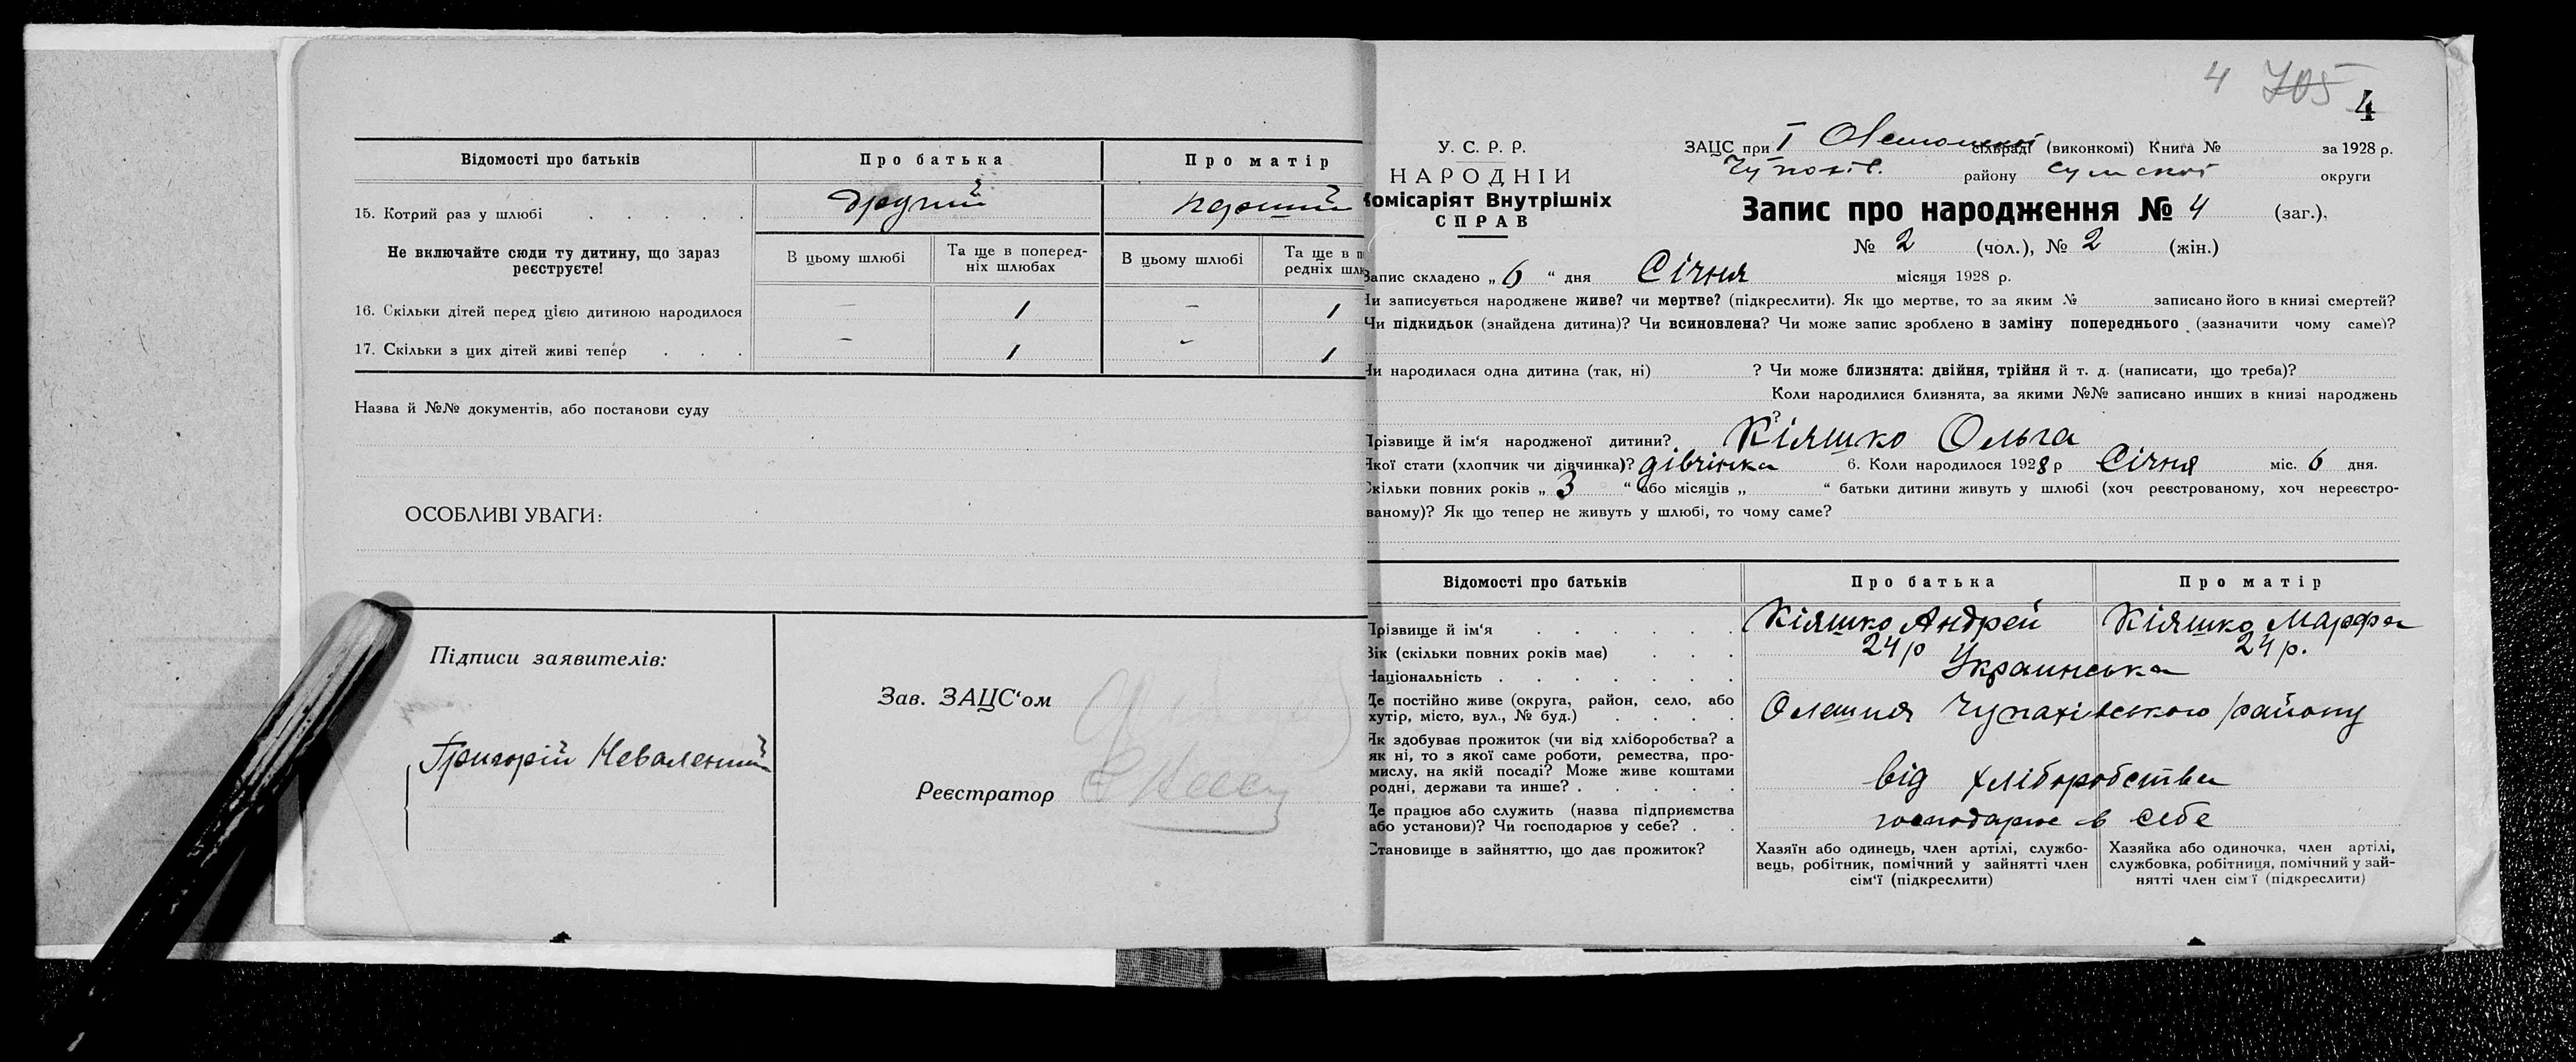 Відомості про батьків
Про батька
Про матір
15. Котрий раз у шлюбі
другий
перший
Не включайте сюди ту дитину, що зараз реєструєте!
В цьому шлюбі
Та ще в поперед-
ніх шлюбах
В цьому шлюбі
Та ще в п
редніх шлю
16. Скільки дітей перед цією дитиною народилося
–
1
–
1
17. Скільки з цих дітей живі тепер
–
1
–
1
Назва й №№ документів, або постанови суду
ОСОБЛИВІ УВАГИ:
Підписи заявителів:
Григорій
Зав. ЗАЦС‘ом
Реєстратор
4 705 4
У. С. Р. Р.
НАРОДНІЙ
Комісаріят Внутрішніх
СПРАВ
ЗАЦС при І сільраді (виконкомі) Книга № за 1928 р.
району Сумської округи
Запис про народження № 4 (заг.),
№ 2 (чол.), № 2 (жін.)
Запис складено „ 6 “ дня Січня місяця 1928 р.
Чи записується народжене живе? чи мертве? (підкреслити). Як що мертве, то за яким № записано його в книзі смертей?
Чи підкидьок (знайдена дитина)? Чи всиновлена? Чи може запис зроблено в заміну попереднього (зазначити чому саме)?
Чи народилася одна дитина (так, ні) ? Чи може близнята: двійня, трійня й т. д. (написати, що треба)?
Коли народилися близнята, за якими №№ записано инших в книзі народжень
?
Прізвище й ім‘я народженої дитини? Кіяшко Ольга
Якої стати (хлопчик чи дівчинка)? дівчінка 6. Коли народилося 1928 р Січня міс. 6 дня.
Скільки повних років „ 3 “ або місяців „ “ батьки дитини живуть у шлюбі (хоч реєстрованому, хоч нереєстро-
ваному)? Як що тепер не живуть у шлюбі, то чому саме?
Відомості про батьків
Про батька
Про матір
Прізвище й ім‘я
Кіяшко Андрей
Кіяшко Марфа
Вік (скільки повних років має)
24 р
24 р.
Національність
Украинська
Де постійно живе (округа, район, село, або
хутір, місто, вул., № буд.)
Олешня Чупахівського району
Як здобуває прожиток (чи від хліборобства? а
як ні, то з якої саме роботи, ремества, про-
мислу, на якій посаді? Може живе коштами
родні, держави та инше?
від хліборобства
Де працює або служить (назва підприємства
або установи)? Чи господарює у себе?
господарює в себе
Становище в зайняттю, що дає прожиток?
Хазяїн або одинець, член артілі, службо-
вець, робітник, помічний у зайнятті член
сім‘ї (підкреслити)
Хазяйка або одиночка, член артілі,
службовка, робітниця, помічний у зай-
нятті член сім‘ї (підкреслити)